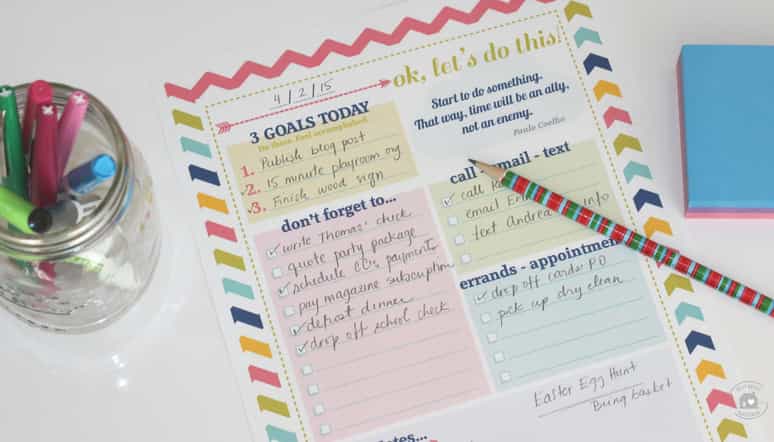 ok, let's do this!
4/2/15
Start to do something.
That way, time will be an ally,
not an enemy.
Paulo Coelho
3 GOALS TODAY
Do these. Feel accomplished.
1. Publish blog post
2. 15 minute playroom org
3. Finish wood sign
call - email - text
call
email
text Andrea info
don't forget to...
write Thomas' check
quote party package
schedule CCs payments
pay magazine subscription
deposit dinner
drop off school check
errands - appointmen
drop off cards: PO
pick up dry clean
Easter Egg Hunt
Bring basket